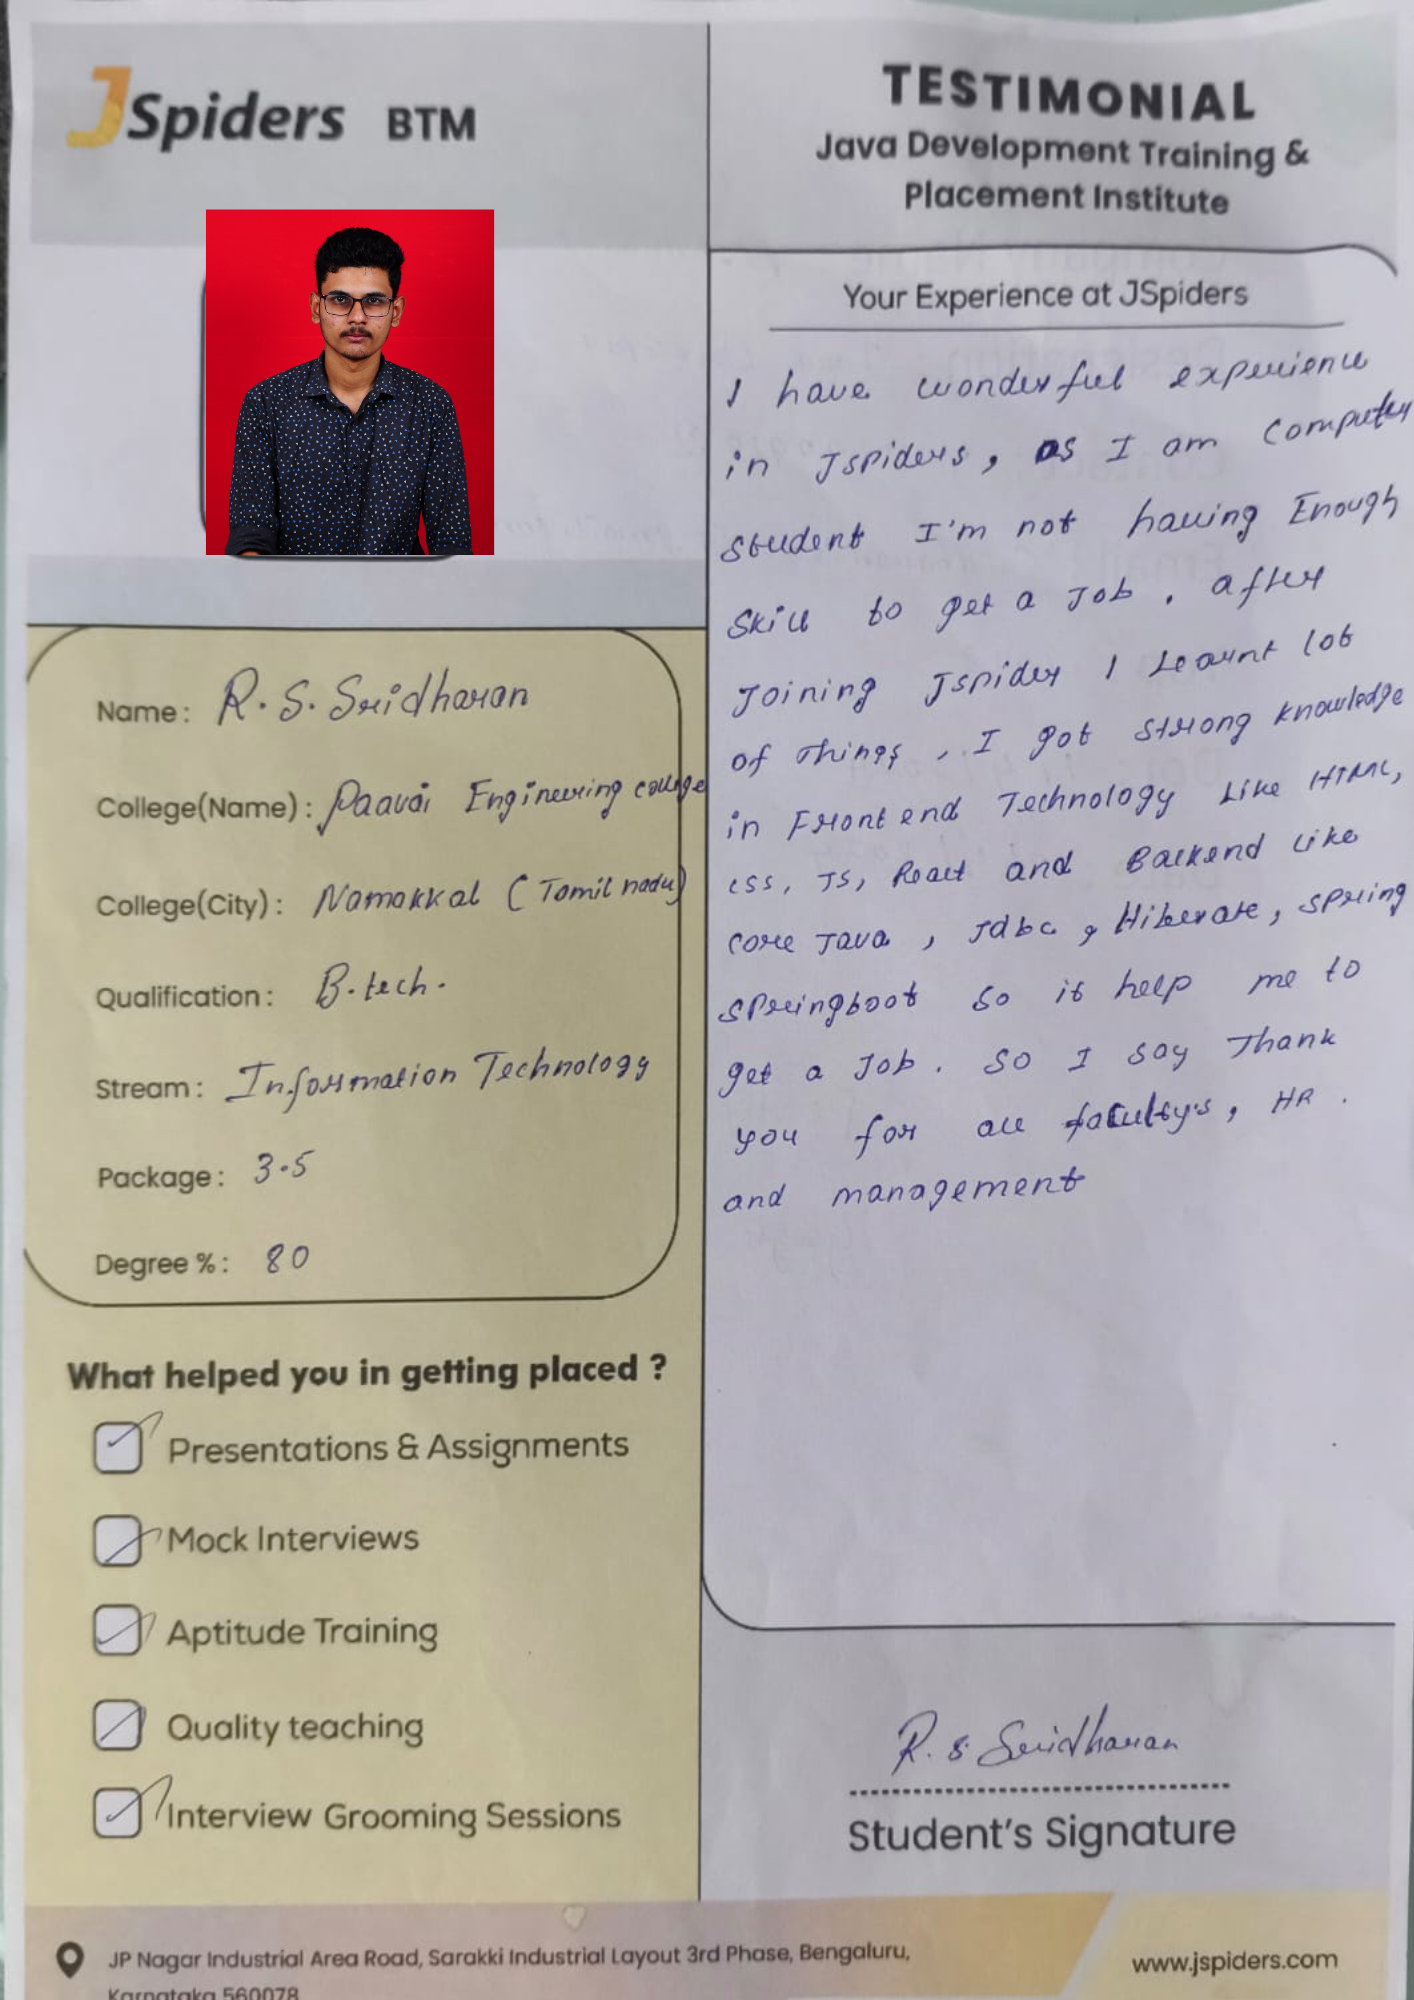 JSpiders BTM
TESTIMONIAL
Java Development Training &
Placement Institute
Name: R.S. Sridharan
College(Name): Paavai Engineering college
College(City): Namakkal (Tamil nadu)
Qualification: B.tech.
Stream: Information Technology
Package: 3.5
Degree %: 80
What helped you in getting placed ?
Presentations & Assignments
Mock Interviews
Aptitude Training
Quality teaching
Interview Grooming Sessions
Your Experience at JSpiders
I have wonderful experience
in Jspiders, as I am Computer
student I'm not having Enough
Skill to get a Job. after
Joining Jspider I Learnt lot
of Things, I got strong knowledge
in Front end Technology Like HTML,
css, JS, React and Backend Like
core Java, Jdbc, Hibernate, spring
springboot so it help me to
get a Job. so I say Thank
you for all faculty's, HR.
and management
R.S. Sridharan
Student's Signature
JP Nagar Industrial Area Road, Sarakki Industrial Layout 3rd Phase, Bengaluru,
Karnataka 560078
www.jspiders.com